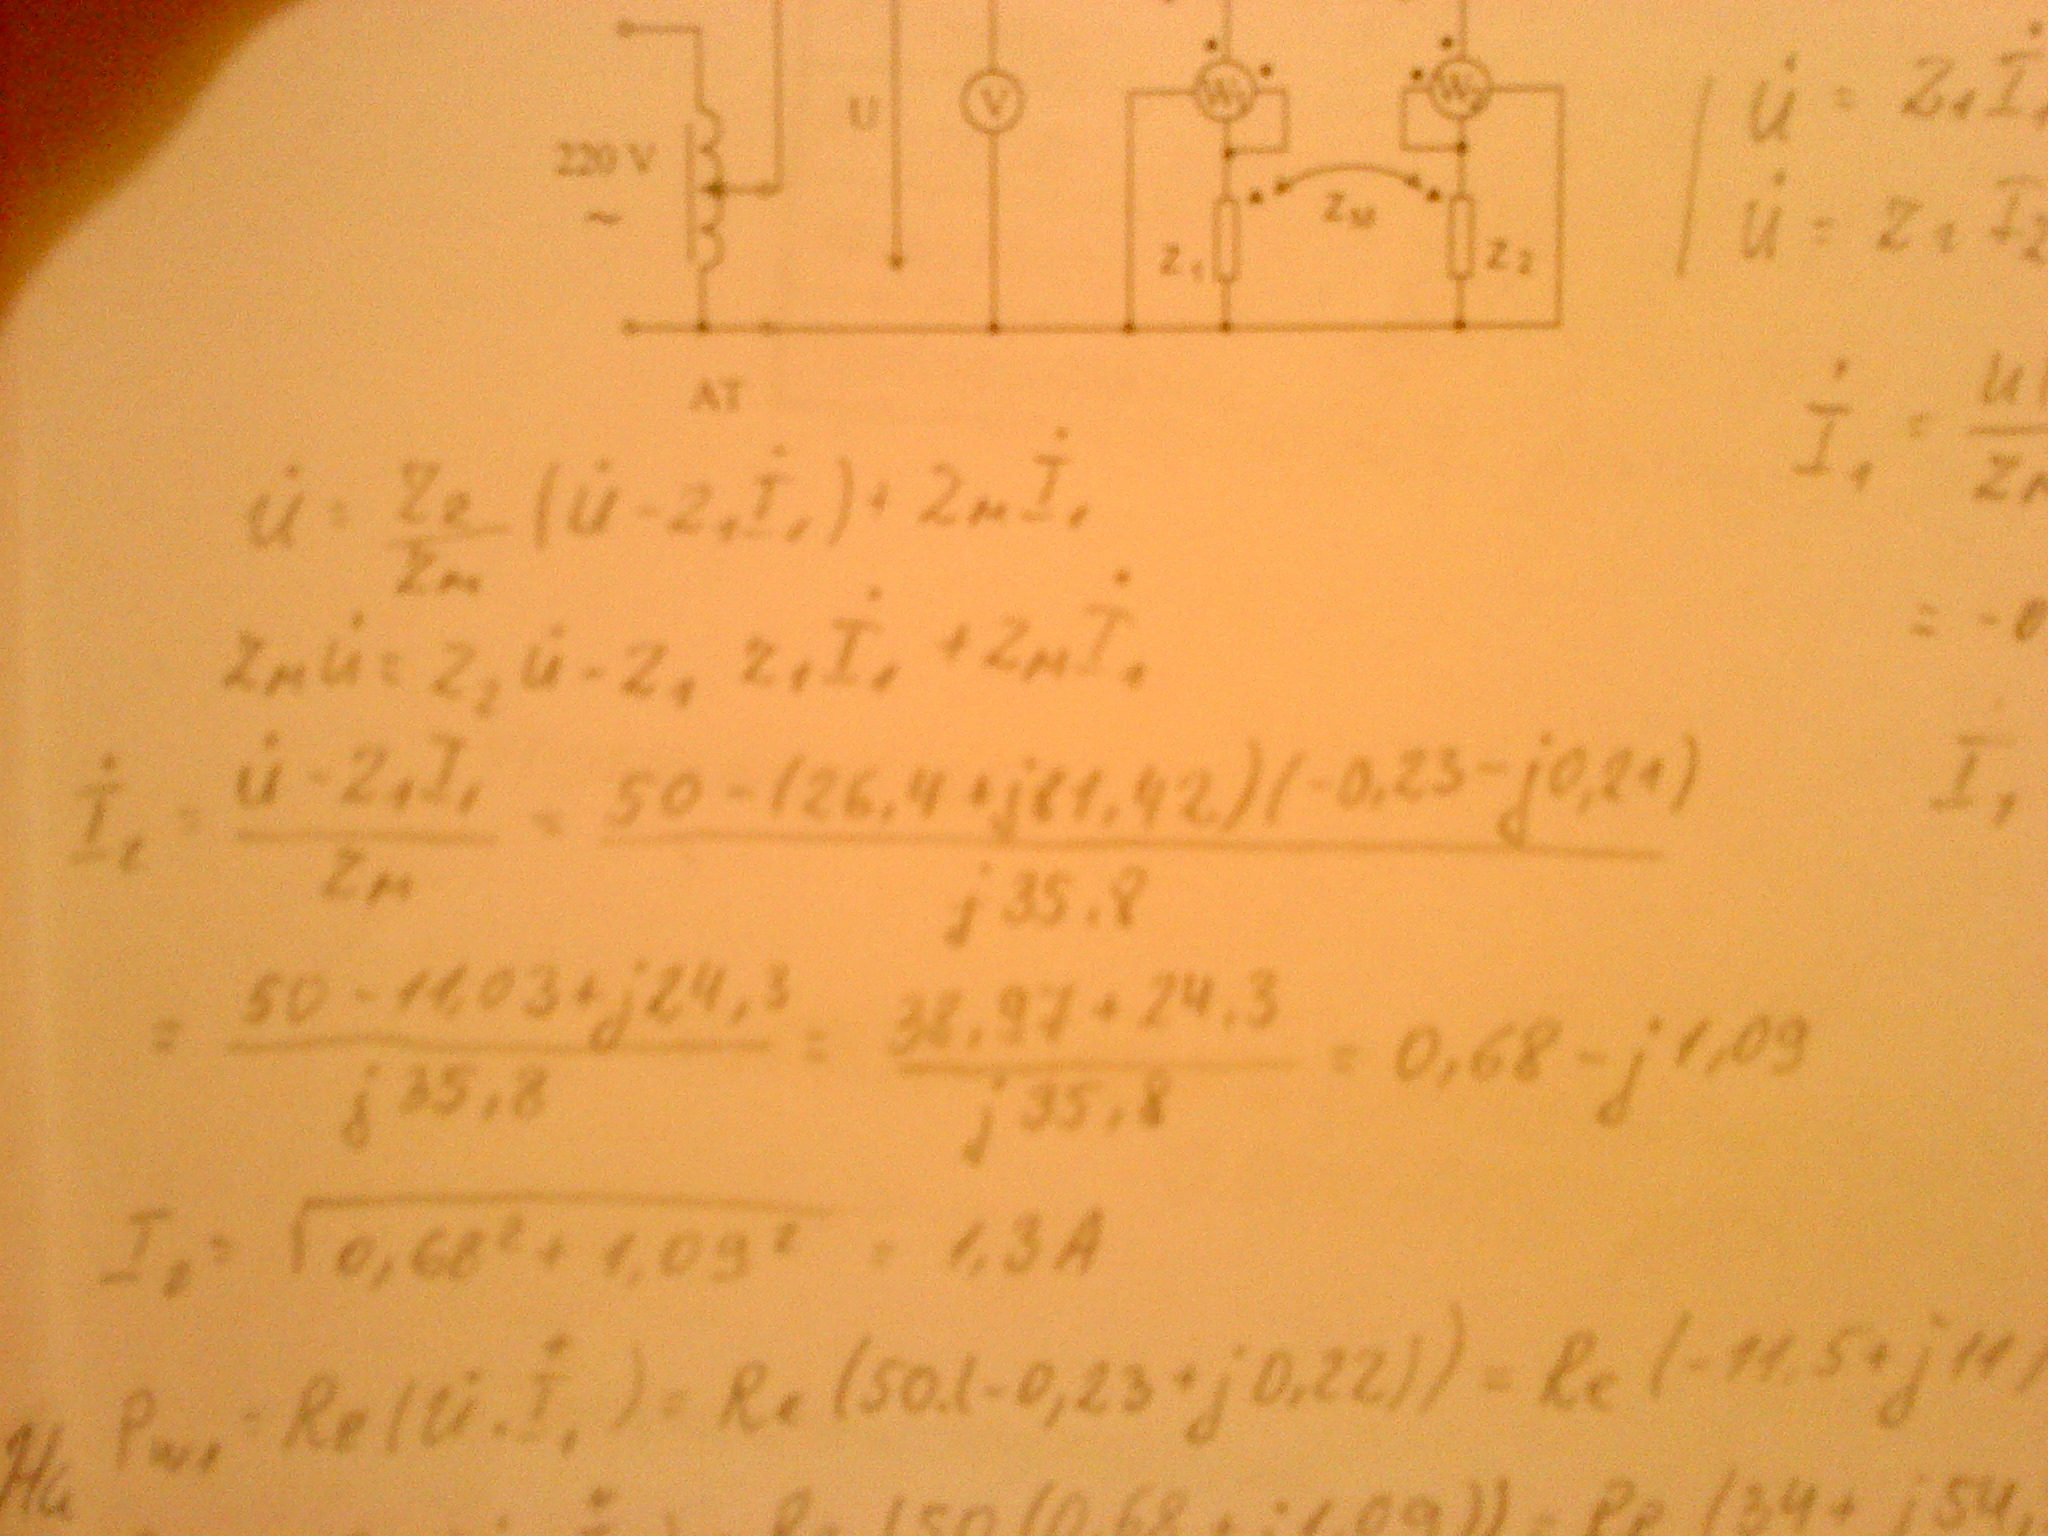 V W₁ W₂ U̇ = Z₁İ₁
U
220 V
~ Z_M U̇ = Z₂ İ₂
Z₁ Z₂
AT İ₁ =
U̇ = Z₂/Z_M (U̇ - Z₁İ₁) + Z_M İ₁
Z_M U̇ = Z₂ U̇ - Z₁ Z₁İ₁ + Z_M İ₁
İ₂ = (U̇ - Z₁İ₁)/Z_M = (50 - (26,4 + j81,42)(-0,23 - j0,21))/(j35,8) İ₁
= (50 - 11,03 + j24,3)/(j35,8) = (38,97 + 24,3)/(j35,8) = 0,68 - j1,09
I₂ = √(0,68² + 1,09²) = 1,3 A
P_W1 = Re(U̇.İ₁*) = Re(50.(-0,23 + j0,22)) = Re(-11,5 + j11)
На
Re(50(0,68 + j1,09)) = Re(34 + j54,